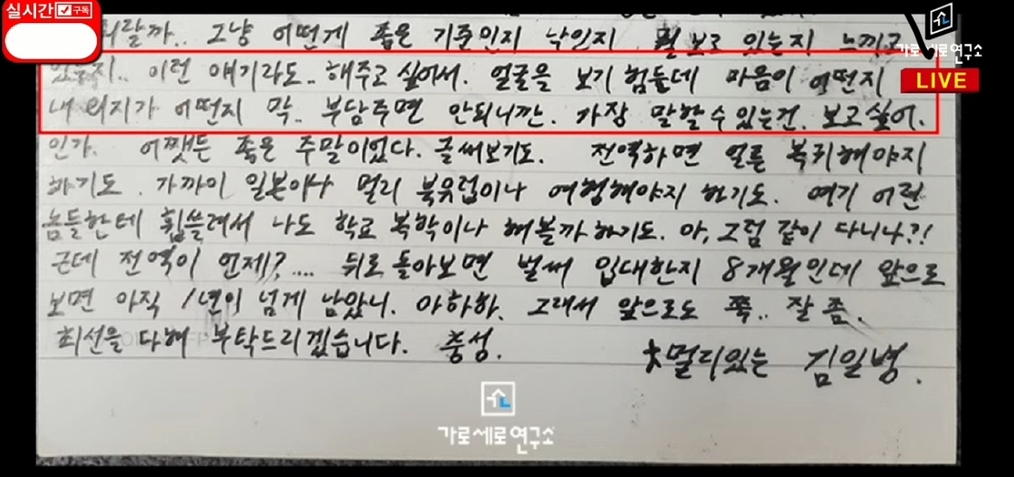 실시간 구독
뭐랄까.. 그냥 어떤게 좋은 기준인지 낙인지 뭘 보고 있는지 느끼고
있는지.. 이런 얘기라도.. 해주고 싶어서. 얼굴을 보기 힘들데 마음이 어떤지
내 의지가 어떤지 막.. 부담주면 안되니깐. 가장 말할 수 있는건. 보고싶어.
인가. 어쨋든 좋은 주말이었다. 글써보기도. 전역하면 얼른 복귀해야지
하기도. 가까이 일본이나 멀리 북유럽이나 여행해야지 하기도. 여기 어린
놈들한테 휩쓸려서 나도 학교 복학이나 해볼까 하기도. 아, 그럼 같이 다니나?!
근데 전역이 언제?.... 뒤로 돌아보면 벌써 입대한지 8개월인데 앞으로
보면 아직 1년이 넘게 남았니. 아하하. 그래서 앞으로도 쭉.. 잘 좀.
최선을 다해 부탁드리겠습니다. 충성.
멀리있는 김일병.
가로세로연구소
LIVE
가로세로연구소